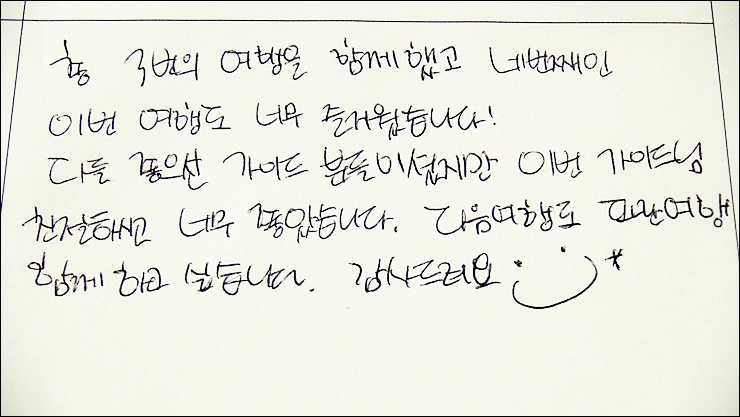 총 3번의 여행을 함께했고 네번째인
이번 여행도 너무 즐거웠습니다!
다들 좋으신 가이드 분들이셨지만 이번 가이드님
친절하시고 너무 좋았습니다. 다음여행도 파란여행
함께 하고 싶습니다. 감사드려요